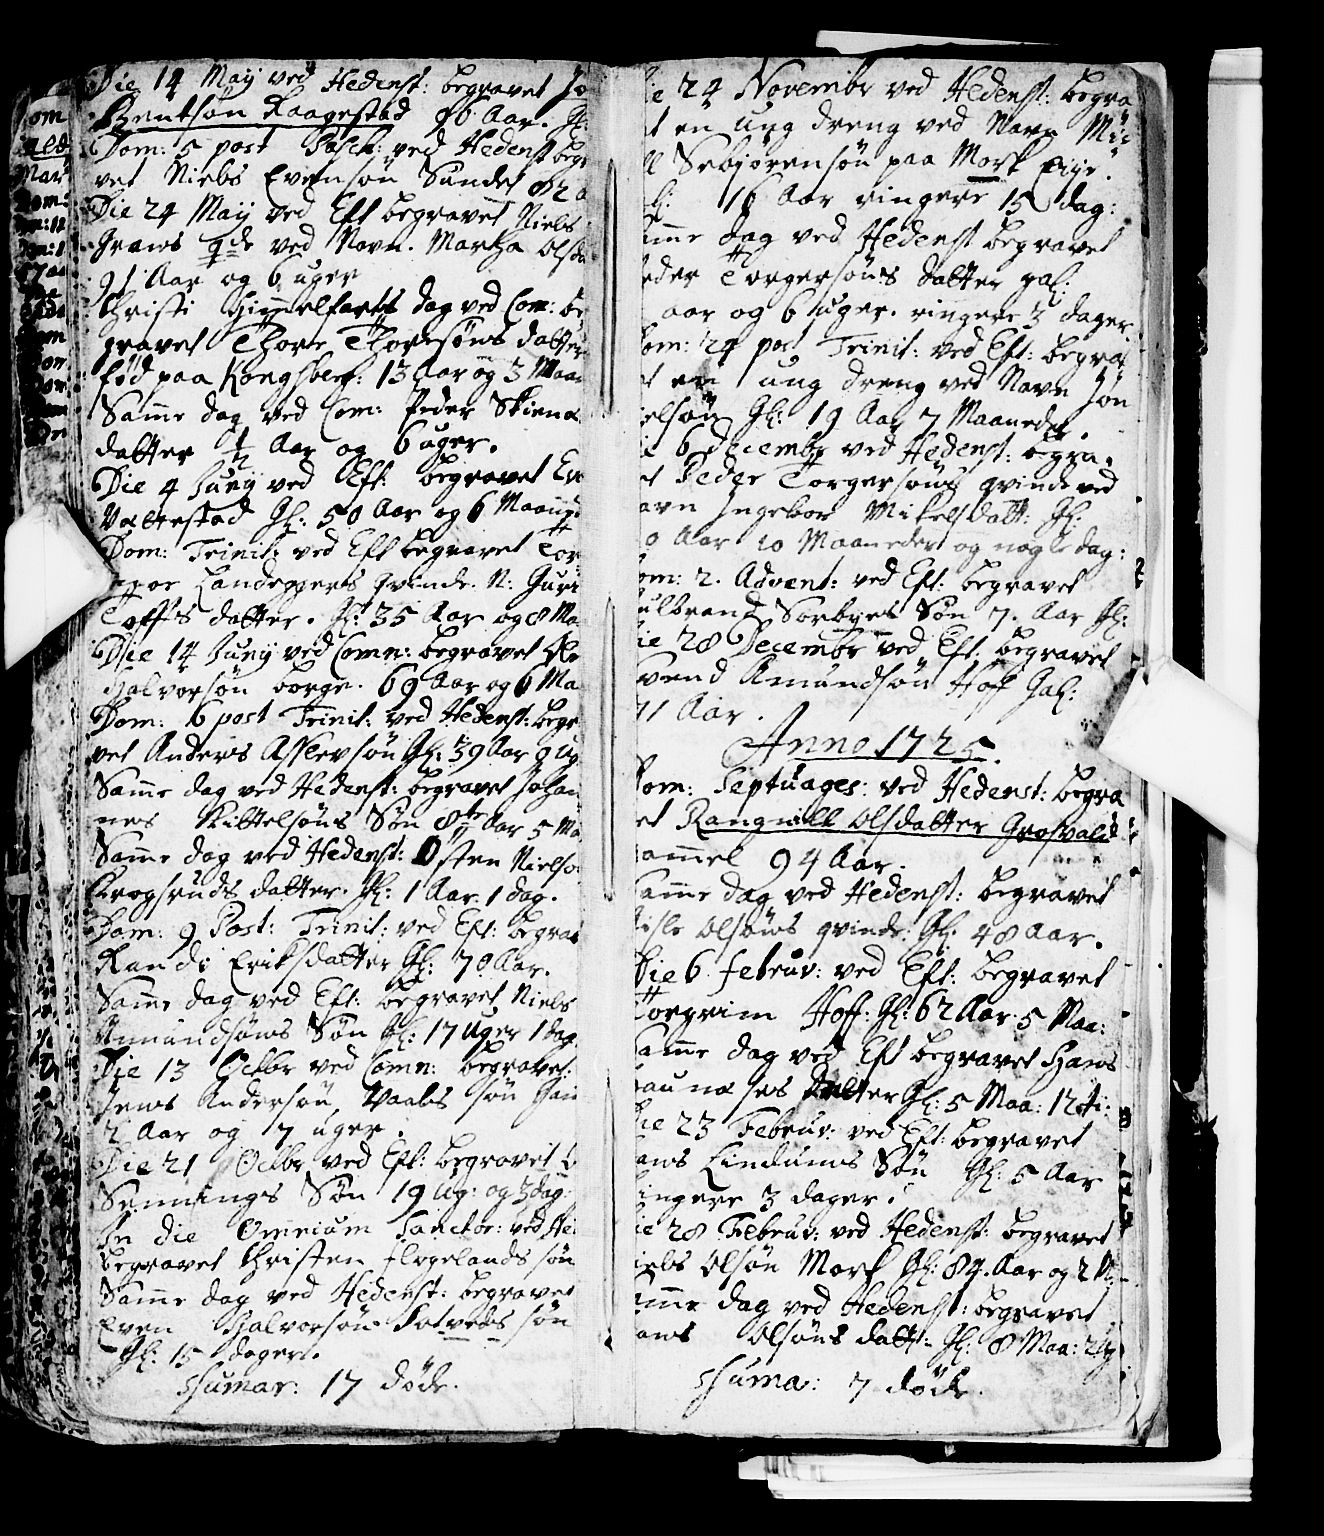 Die 14 Maij ved Hedenst: begravet Jo
Bentsøn Kaagestad 86 Aar. Gl:
Dom: 5 post Pasch: ved Hedenst begr
vet Niels Evensøn Sundet 82 a
Die 24 Maij ved Eft begravet Niels
Graws qde ved Navn. Martha Olsda
91 Aar og 6 uger
Christi Himmelfarts dag ved Com: be
gravet Thore Thoresøns datter
fød paa Kongsberg: 13 Aar og 3 Maa
Samme dag ved Com: Peder Skiena
datter 1/2 Aar og 6 uger.
Die 4 Junij ved Eft: begravet Ev
Vattestad Gl: 50 Aar og 6 Maane
Dom: Trinit: ved Eft begravet Tor
Landeggers qvinde. N: Guri
Toffs datter. Gl: 35 Aar og 8 Ma
Die 14 Junij ved Comn: begravet Ole
Halvorsøn borge. 69 Aar og 6 Ma
Dom: 6 post Trinit: ved Hedenst: begr
vet Anders Asslevsøn Gl: 39 Aar 9 ug
Samme dag ved Hedenst: begravet Johan
nes Kittelsøns Søn 8te Aar 5 Ma
Samme dag ved Hedenst: Østen Nielsø
Krogsruds datter. Gl: 1 Aar. 1 dag.
Dom: 9 Post: Trinit: ved Eft: begrav
Randi Eriksdatter Gl: 70 Aar.
Samme dag ved Eft: begravet Niels
Amundsøns Søn Gl: 17 uger 1 dag
Die 13 Octbr ved Comn: begravet.
Jens Andersøn Vaabs søn
2 Aar og 7 uger.
Die 21 Octbr ved Eft: begravet
Sennings Søn 19 ug: og 3 dag:
In die Omnium Sanctor: ved He:
begravet Christen flogelands søn
Samme dag ved Hedenst: begravet
Even Halvorsøn Fosveds søn
Gl: 15 dager.
Sumar: 17 døde.
ie 24 Novembr ved Hedenst: begra
t en ung dreng ved Navn Mi:
ll Sebjørensøn paa Mork Eige.
Gl: 16 Aar ringere 15 dag:
amme dag ved Hedenst begravet
eder Torgersøns datter gal:
aar og 6 uger. ringere 3 dager
om: 24 post Trinit: ved Eft: begra
et en ung dreng ved Navn Jon
ielsøn Gl: 19 Aar 7 Maaneder.
ie 6 Decembr ved Hedenst: begra.
et Peder Torgersøns qvinde ved
avn Ingebor Mikelsdatt: Gl:
0 Aar 10 Maaneder og nogle dag:
om: 2. Advent: ved Eft: begravet
ulbrand Sorbyes Søn 7. Aar Gl:
ie 28 Decembr ved Eft. begravet
vend Amundsøn Hoff Gal:
71 Aar.
Anno 1725.
Dom: Septuages: ved Hedenst: begra
et Rangnill Olsdatter Grosvald
gammel 94 Aar.
amme dag ved Hedenst: begravet
isle Olsøns qvinde. Gl: 48 Aar.
Die 6 februr: ved Eft: begravet
Torgrim Hoff: Gl: 62 Aar. 5 Maa:
amme dag ved Eft begravet Hans
datter Gl: 5 Maa: 12
ie 23 Februr: ved Eft: begravet
ans Lindums Søn Gl: 5 Aar
ringere 3 dager.
ie 28 Februr: ved Hedenst: begravet
iels Olsøn Mork Gl: 84. Aar og 2 M
amme dag ved Hedenst: begravet
ans Olsøns datt: Gl: 8 Maa: 2 ug
Suma: 7 døde.